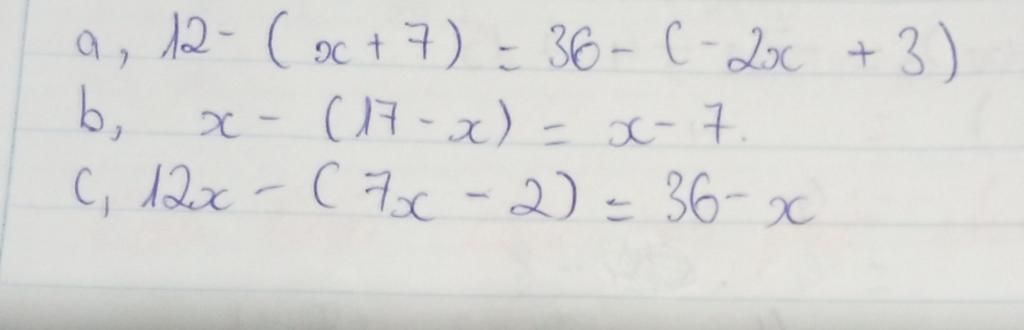 a, 12 - (x + 7) = 36 - (-2x + 3)
b, x - (17 - x) = x - 7.
c, 12x - (7x - 2) = 36 - x